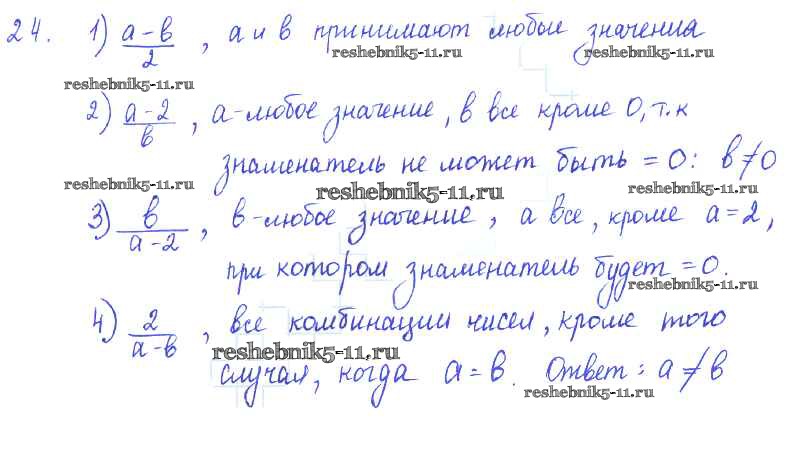 24. 1) a-в/2, а и в принимают любые значения
reshebnik5-11.ru
reshebnik5-11.ru
2) a-2/в, а-любое значение, в все кроме 0, т.к
знаменатель не может быть = 0: в≠0
reshebnik5-11.ru reshebnik5-11.ru reshebnik5-11.ru
3) в/a-2, в-любое значение, а все, кроме а=2,
при котором знаменатель будет = 0.
reshebnik5-11.ru
4) 2/a-в, все комбинации чисел, кроме того
reshebnik5-11.ru
случая, когда а=в. Ответ: а≠в
reshebnik5-11.ru